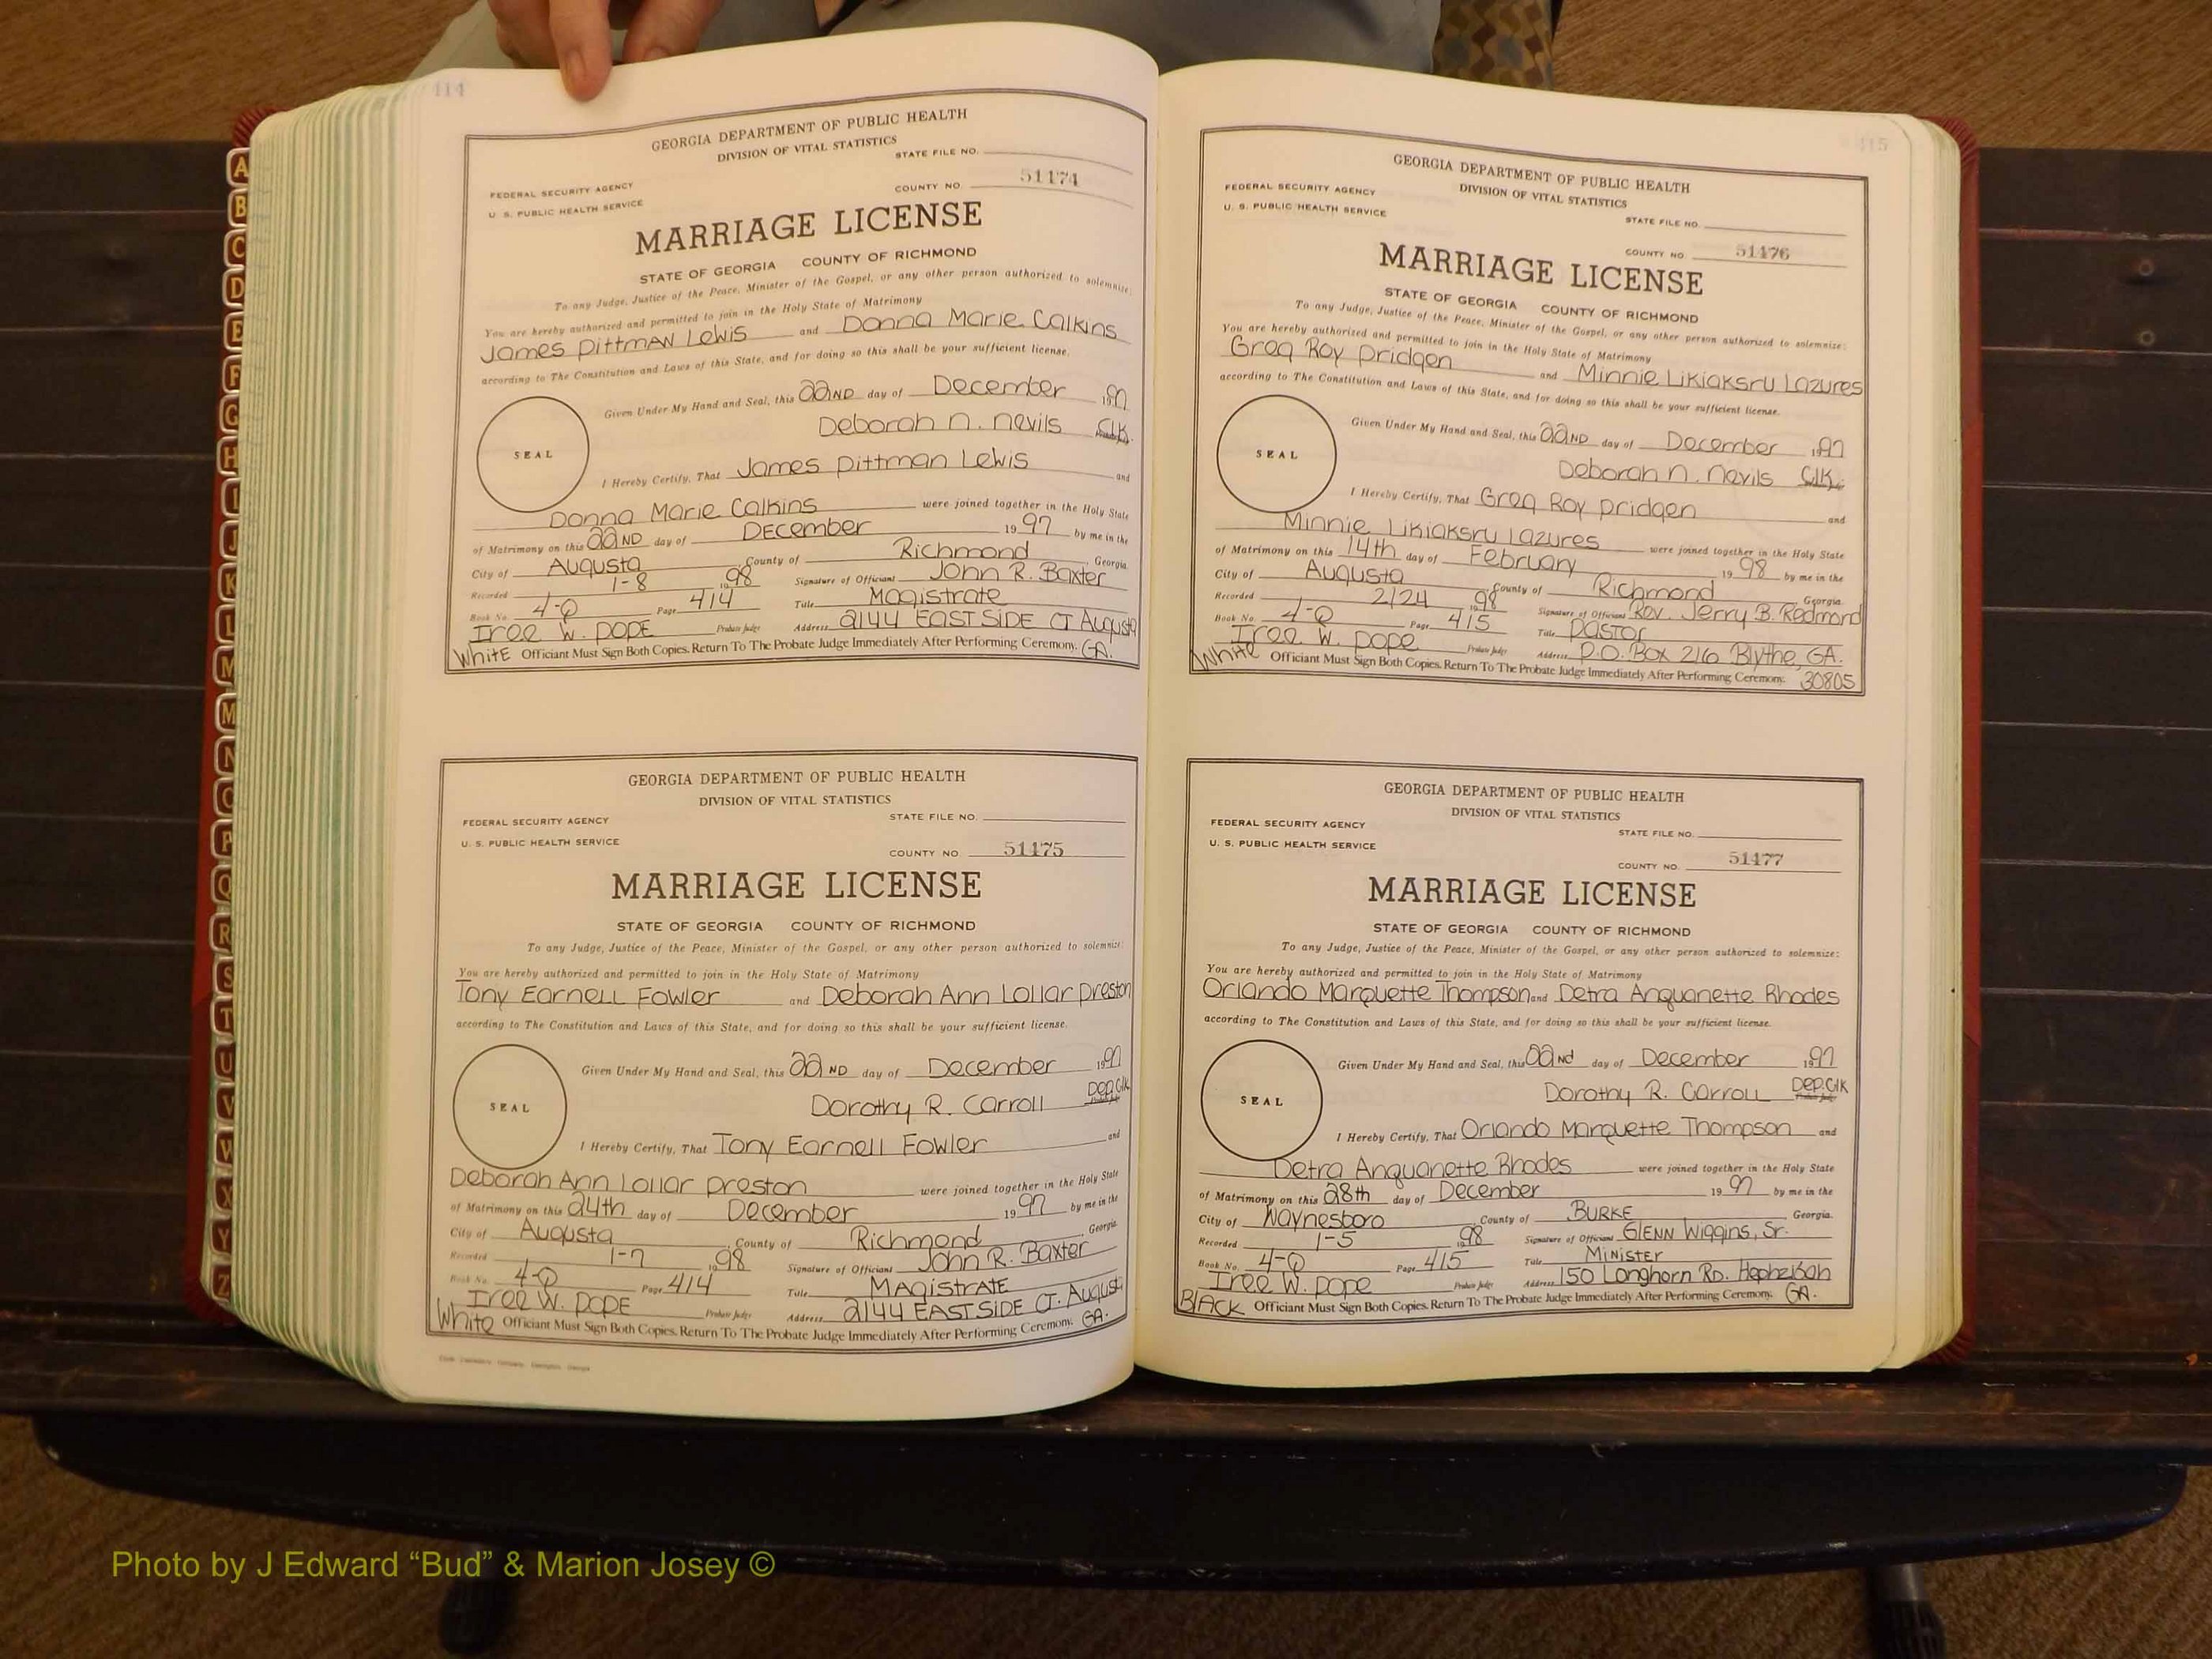 414
GEORGIA DEPARTMENT OF PUBLIC HEALTH
DIVISION OF VITAL STATISTICS
STATE FILE NO.
FEDERAL SECURITY AGENCY
COUNTY NO. 51174
U. S. PUBLIC HEALTH SERVICE
MARRIAGE LICENSE
STATE OF GEORGIA COUNTY OF RICHMOND
To any Judge, Justice of the Peace, Minister of the Gospel, or any other person authorized to solemnize:
You are hereby authorized and permitted to join in the Holy State of Matrimony
James Pittman Lewis and Donna Marie Calkins
according to The Constitution and Laws of this State, and for doing so this shall be your sufficient license.
Given Under My Hand and Seal, this 22ND day of December 1997
Deborah N. Nevils Clk.
SEAL
I Hereby Certify, That James Pittman Lewis and
Donna Marie Calkins were joined together in the Holy State
of Matrimony on this 22ND day of DECEMBER 1997 by me in the
City of Augusta County of Richmond Georgia
Recorded 1-8 1998 Signature of Officiant John R. Baxter
Book No. 4-Q Page 414 Title Magistrate
Iree W. POPE Probate Judge Address 2144 EAST SIDE CT Augusta
White Officiant Must Sign Both Copies. Return To The Probate Judge Immediately After Performing Ceremony. GA.
GEORGIA DEPARTMENT OF PUBLIC HEALTH
DIVISION OF VITAL STATISTICS
STATE FILE NO.
FEDERAL SECURITY AGENCY
U. S. PUBLIC HEALTH SERVICE
COUNTY NO. 51175
MARRIAGE LICENSE
STATE OF GEORGIA COUNTY OF RICHMOND
To any Judge, Justice of the Peace, Minister of the Gospel, or any other person authorized to solemnize:
You are hereby authorized and permitted to join in the Holy State of Matrimony
Tony Earnell Fowler and Deborah Ann Lollar Preston
according to The Constitution and Laws of this State, and for doing so this shall be your sufficient license.
Given Under My Hand and Seal, this 22ND day of December 1997
Dorothy R. Carroll Dep. Clk
SEAL
I Hereby Certify, That Tony Earnell Fowler and
Deborah Ann Lollar Preston were joined together in the Holy State
of Matrimony on this 24th day of December 1997 by me in the
City of Augusta County of Richmond Georgia
Recorded 1-7 1998 Signature of Officiant John R. Baxter
Book No. 4-Q Page 414 Title MAgistRATE
Iree W. POPE Probate Judge Address 2144 EAST SIDE CT. August
White Officiant Must Sign Both Copies. Return To The Probate Judge Immediately After Performing Ceremony. GA.
415
GEORGIA DEPARTMENT OF PUBLIC HEALTH
DIVISION OF VITAL STATISTICS
FEDERAL SECURITY AGENCY
U. S. PUBLIC HEALTH SERVICE
STATE FILE NO.
COUNTY NO. 51176
MARRIAGE LICENSE
STATE OF GEORGIA COUNTY OF RICHMOND
To any Judge, Justice of the Peace, Minister of the Gospel, or any other person authorized to solemnize:
You are hereby authorized and permitted to join in the Holy State of Matrimony
Greg Roy Pridgen and Minnie Likiaksru Lazures
according to The Constitution and Laws of this State, and for doing so this shall be your sufficient license.
Given Under My Hand and Seal, this 22ND day of December 1997
Deborah N. Nevils Clk.
SEAL
I Hereby Certify, That Greg Roy Pridgen and
Minnie Likiaksru Lazures were joined together in the Holy State
of Matrimony on this 14th day of February 1998 by me in the
City of Augusta County of Richmond Georgia
Recorded 2/24 1998 Signature of Officiant Rev. Jerry B. Redmond
Book No. 4-Q Page 415 Title Pastor
Iree W. Pope Probate Judge Address P.O. Box 216 Blythe, GA.
White Officiant Must Sign Both Copies. Return To The Probate Judge Immediately After Performing Ceremony. 30805
GEORGIA DEPARTMENT OF PUBLIC HEALTH
DIVISION OF VITAL STATISTICS
FEDERAL SECURITY AGENCY
STATE FILE NO.
U. S. PUBLIC HEALTH SERVICE
COUNTY NO. 51177
MARRIAGE LICENSE
STATE OF GEORGIA COUNTY OF RICHMOND
To any Judge, Justice of the Peace, Minister of the Gospel, or any other person authorized to solemnize:
You are hereby authorized and permitted to join in the Holy State of Matrimony
Orlando Marquette Thompson and Detra Anquanette Rhodes
according to The Constitution and Laws of this State, and for doing so this shall be your sufficient license.
Given Under My Hand and Seal, this 22nd day of December 1997
Dorothy R. Carroll Dep. Clk
SEAL
I Hereby Certify, That Orlando Marquette Thompson and
Detra Anquanette Rhodes were joined together in the Holy State
of Matrimony on this 28th day of December 1997 by me in the
City of Waynesboro County of BURKE Georgia
Recorded 1-5 1998 Signature of Officiant GLENN Wiggins, Sr.
Book No. 4-Q Page 415 Title Minister
Iree W. Pope Probate Judge Address 150 Longhorn Rd. Hephzibah
BLACK Officiant Must Sign Both Copies. Return To The Probate Judge Immediately After Performing Ceremony. GA.
A
B
C
D
E
F
G
H
I
J
K
L
M
M
N
O
P
Q
R
S
T
U
V
W
X
Y
Z
Photo by J Edward “Bud” & Marion Josey ©